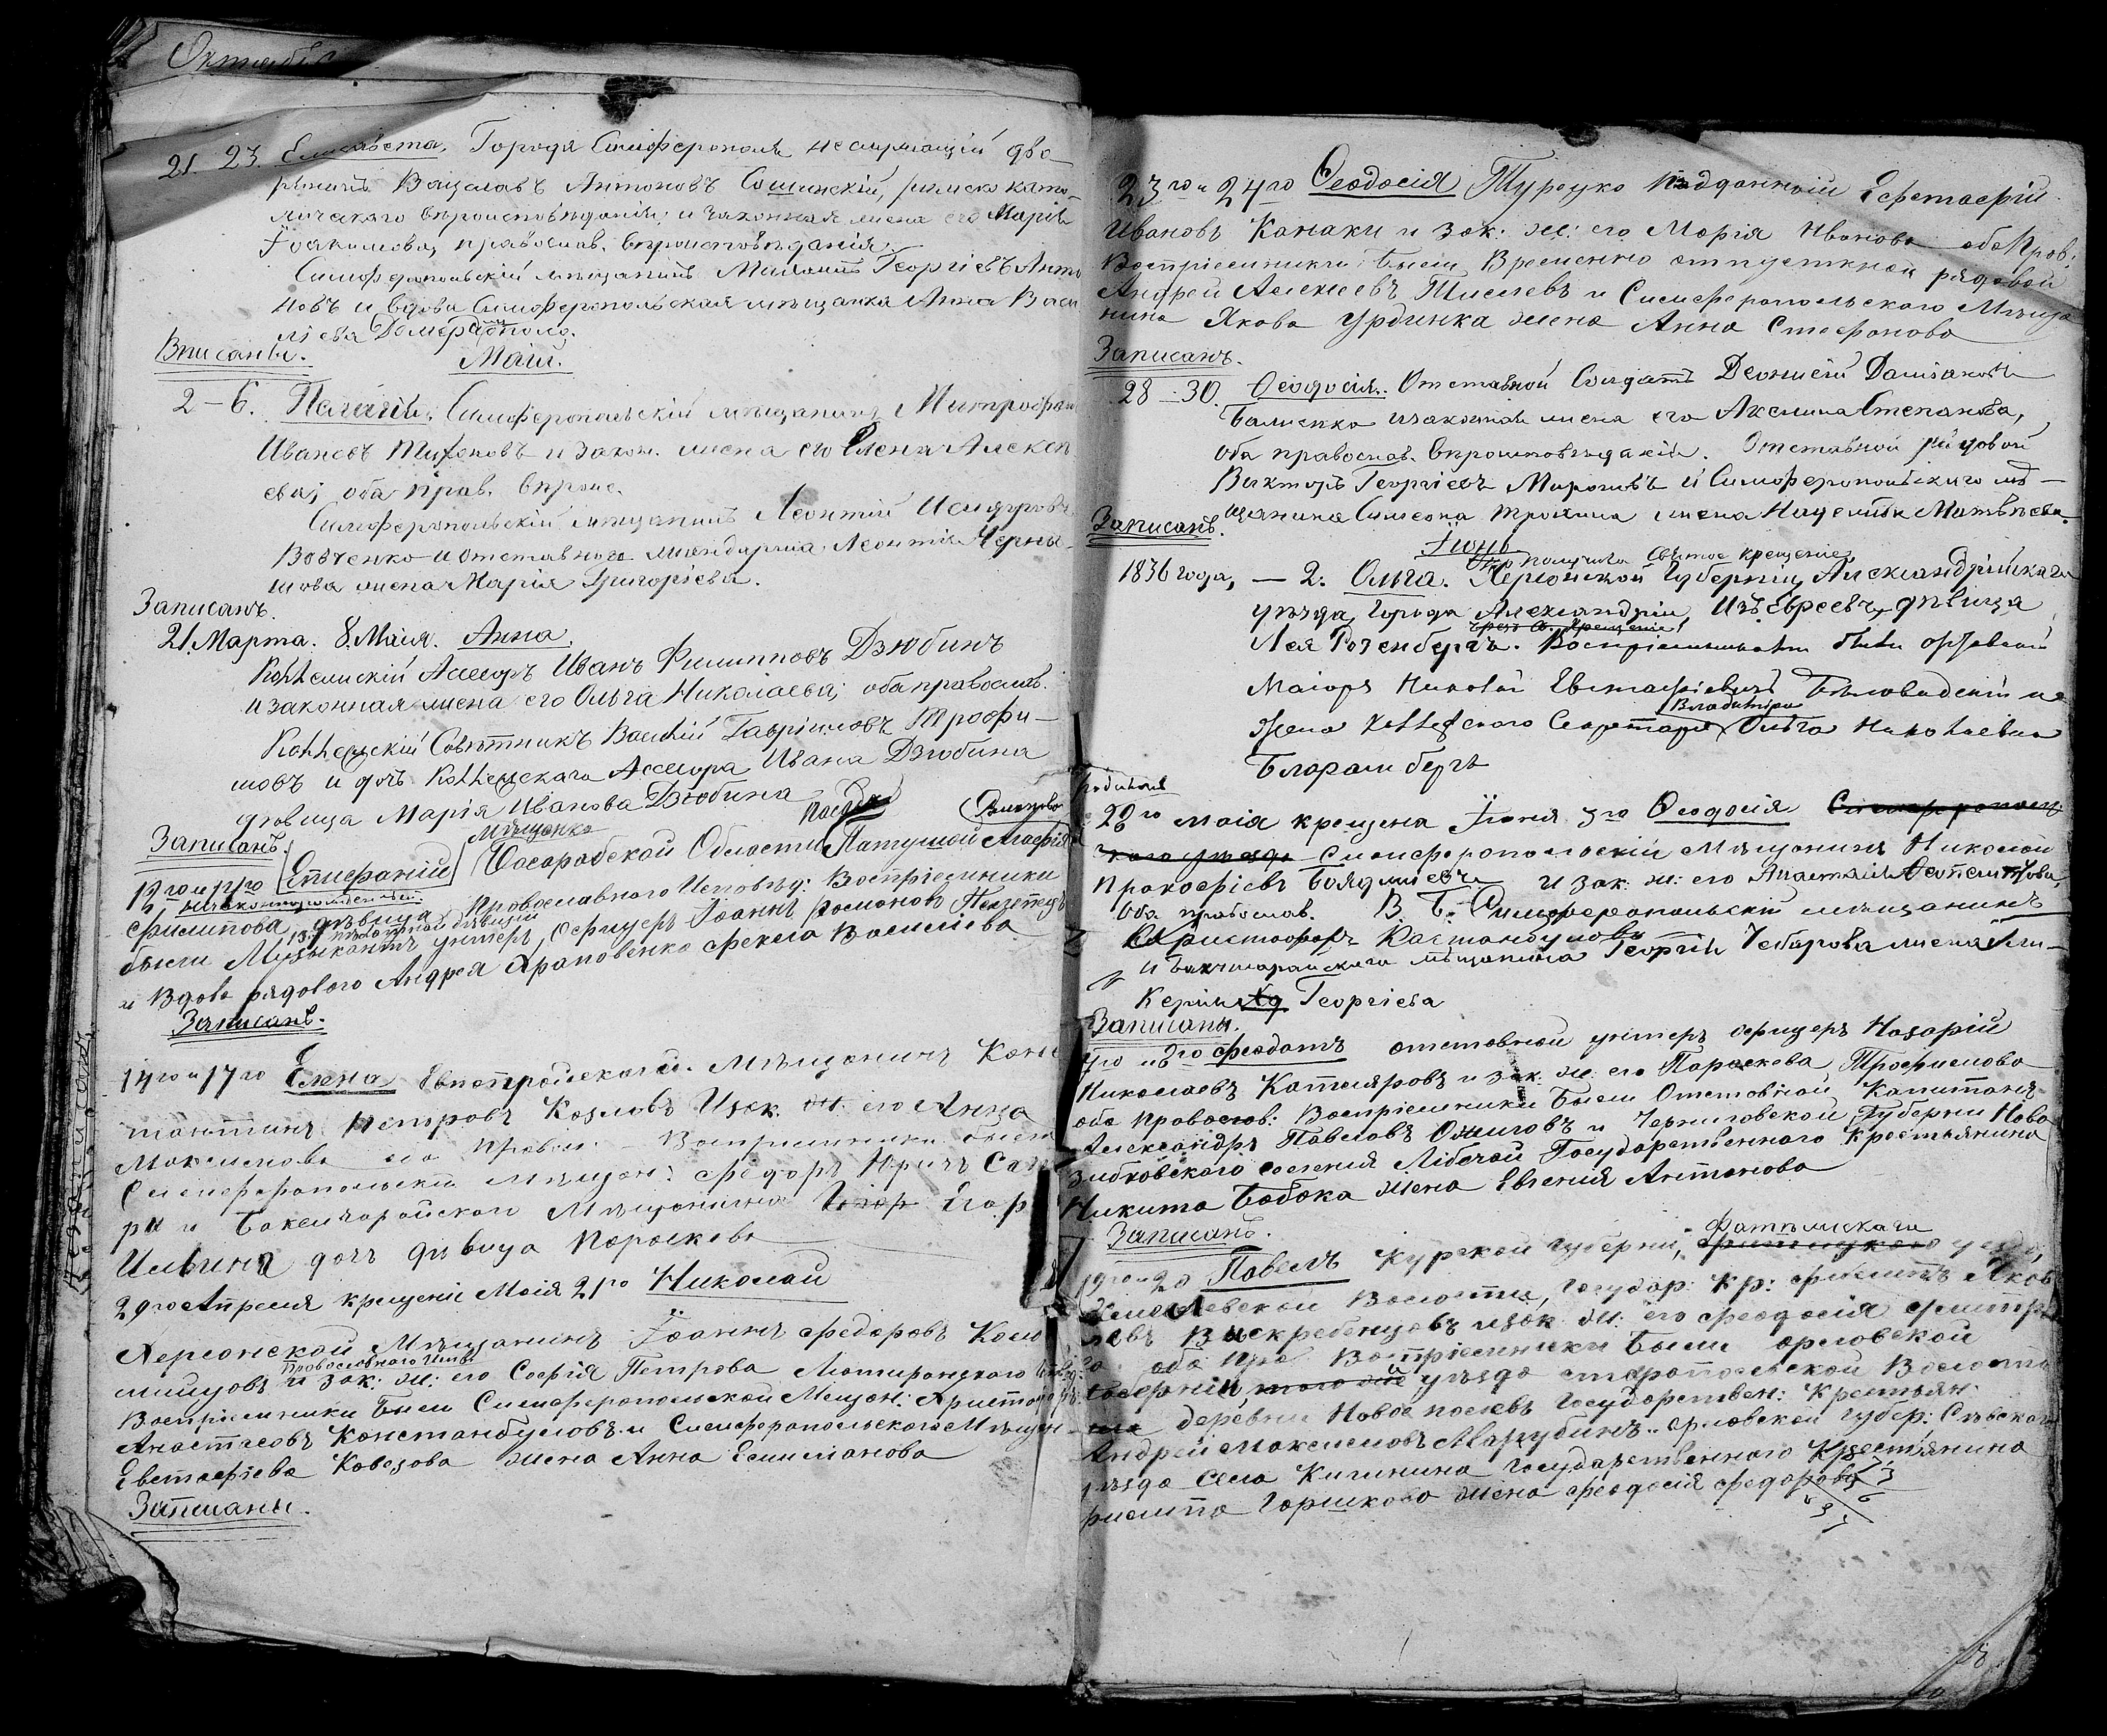 Октябрь
21. 23. Елисавета, Города Симферополя не служащій дво
рянинъ Вацлавъ Антоновъ Сошинскій, римско като
лическаго вѣроисповѣданія, и законная жена его Марія
Іоакимова, православ. вѣроисповѣданія.
Симферопольскій мѣщанинъ Георгіевъ Анто
новъ и вдова Симферопольская мѣщанка Анна Васи
льева
Вписаны. Маій.
2 – 6. Пелагія, Симферопольскій мѣщанинъ Митрофан
Ивановъ Тихоновъ и закон. жена его Елена Алексѣ
ева; оба прав. вѣроис.
Симферопольскій мѣщанинъ Леонтій Исидоровъ
Вовченко и отставнаго жандарма Леонтія Черны-
шова жена Марія Григоріева.
Записанъ.
21. Марта. 8. Маія. Анна.
Коллежскій Ассесоръ Иванъ Филипповъ Дзюбинъ
и законная жена его Ольга Николаева; оба православ.
Коллежскій Совѣтникъ Василій Гавріиловъ Трофи-
мовъ и дочь Коллежскаго Ассесора Ивана Дзюбина
дѣвица Марія Иванова Дзюбина
Записанъ. Мѣщанка
12го и 17го Епифаній Бесарабской Области Агафія
незаконнорожденный
Филипова дѣвица Православнаго Исповѣд: Воспріемники
были Музыкантъ унтеръ офицеръ Іоаннъ Романовъ
и Вдова рядового Андрея Храповенко Фекела Васильева
Записанъ.
14го и 17го Елена Евпаторійскаго Мѣщанинъ Конс
тантинъ Петровъ Козловъ и зак. ж. его Анна
Максимова Правосл. Воспріемники были
Симферопольскій мѣщан: Федоръ
ри и Бакчисарайскаго Мѣщанина Егор
Ильина дочь дѣвица Параскева
29го Апреля крещеніе Маія 21го Николай
Херсонской Мѣщанинъ Іоаннъ Федоровъ Коло
Православнаго Испов:
мийцовъ и зак: ж: его Софія Петрова Лютеранскаго
Воспріемники были Симферопольской Мещан: Христофоръ
Анастасовъ Констанбуловъ и Симферопольскаго Мѣщан
Евстафіева Кавезова жена Анна Емилианова
Записаны.
23го и 24го Ѳеодосія Турецко подданный Ефстафій
Ивановъ Канаки и зак: ж: его Марія Иванова оба Прав:
Воспріемники были Временно отпускной рядовой
Андрей Алексеевъ и Симферопольскаго Мѣща
нина Якова Урдинка жена Анна Стефанова
Записанъ.
28 – 30. Ѳеодосія. Отставной Солдатъ Деонисій
и законная жена его Аксинья Степанова,
оба православ. вѣроисповѣданія. Отставной рядовой
Викторъ Георгіевъ Мироновъ и Симферопольскаго мѣ-
щанина Симеона Трохина жена Матвѣева.
Записанъ. Іюнь
получила Святое крещеніе
1836 года, – 2. Ольга. Херсонской Губерніи, Александрійскаго
уѣзда, Города Александріи, Изъ Евреевъ, дѣвица
чрезъ св. крещеніе
Лея Розенбергъ. Воспріемниками были
Маіоръ Николай Евстафіевичъ Бѣловодскій и
Владиміра
Жена Коллежскаго Секретаря Ольга Николаевна
Бларамбергъ
родилась
28го маія крещена Іюня 3го Ѳеодосія
Симферопольскій Мѣщанинъ Николай
Прокофіевъ и зак: ж: его Анастасія
оба православ. В. Б. Симферопольскій мѣщанинъ
Христофоръ Кастанбуловъ
и Бакчисарайскаго мѣщанина Георгія Чебарова жена
Георгіева
Записаны.
Феодотъ отставной унтеръ офицеръ Назарій
Николаевъ Катляровъ и зак: ж: его Параскева Трофимова
оба Правослов: Воспріемники были Отставной Капитанъ
Александръ Павловъ и Черниговской Губерніи Ново
зыбковского селенія Государственного крестьянина
Никита Бабока жена Евгенія Антонова
Записанъ.
19го и 20 Павелъ Курской губерніи, Фатежскаго уезда,
Волости, Государ: Кр: Филипъ Яков
левъ и зак: ж: его Феодосія
оба Пра Воспріемники были Орловской
Губерніи уѣзда Волости
деревни Государствен: Крестьян:
Андрей Максимовъ Марубинъ и Орловской Губер: Сѣвскаго
уѣзда села Государственного Крестьянина
Горшкова жена Феодосія Федорова